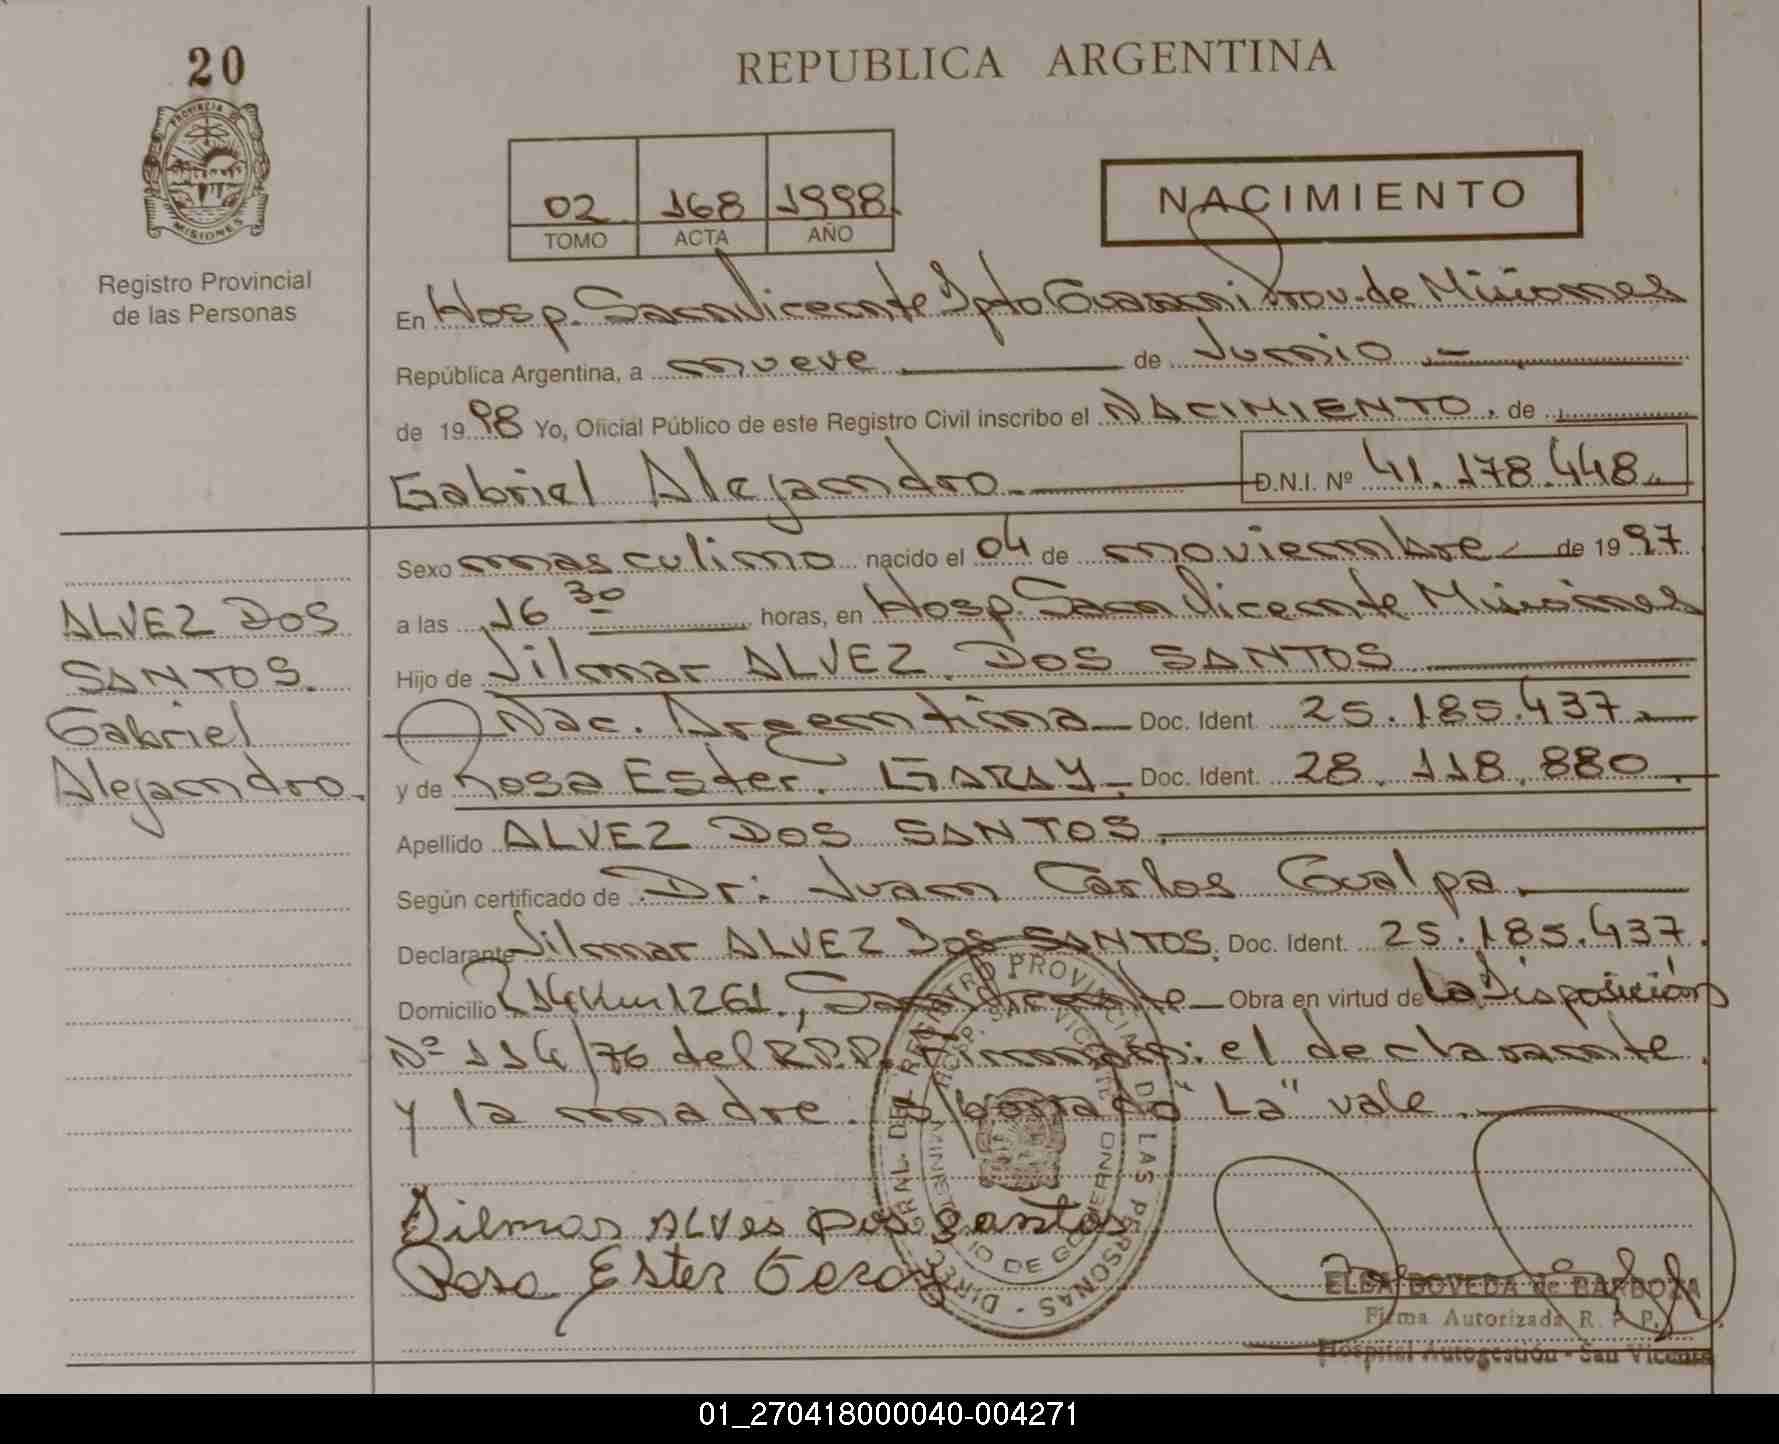 20
REPUBLICA ARGENTINA
PROVINCIA DE
MISIONES
Registro Provincial
de las Personas
02 168 1998
TOMO ACTA AÑO
NACIMIENTO
En Hosp. San Vicente Dpto Guaraní Prov. de Misiones
República Argentina, a nueve de Junio .-
de 1998 Yo, Oficial Público de este Registro Civil inscribo el NACIMIENTO. de
Gabriel Alejandro.
D.N.I. Nº 41.178.448.
ALVEZ DOS
SANTOS.
Gabriel
Alejandro.
Sexo masculino nacido el 04 de noviembre de 1997
a las 16 30 horas, en Hosp. San Vicente Misiones
Hijo de Vilmar ALVEZ DOS SANTOS
Nac. Argentina Doc. Ident. 25.185.437.
y de Rosa Ester. GARAY. Doc. Ident. 28.118.880.
Apellido ALVEZ DOS SANTOS.
Según certificado de Dr: Juan Carlos Gualpa.
Declarante Vilmar ALVEZ DOS SANTOS. Doc. Ident. 25.185.437.
Domicilio R 14 Km 1261., San Vicente Obra en virtud de La Disposición
Nº 114/76 del R.P.P. Firman: el declarante
y la madre. S/borrado "La" vale.
DIREC. GRAL. DEL REGISTRO PROVINCIAL DE LAS PERSONAS
HOSP. SAN VICENTE
MINISTERIO DE GOBIERNO
Silmar ALVes Dos santos
Rosa Ester Geray
ELBA BOVEDA de BARBOZA
Firma Autorizada R. P. P.
Hospital Autogestión - San Vicente
01_270418000040-004271